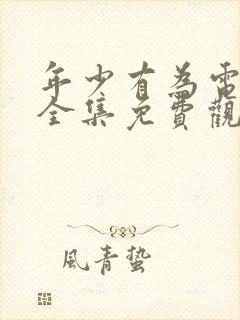 年少有為電
全集免費觀
風青蟄